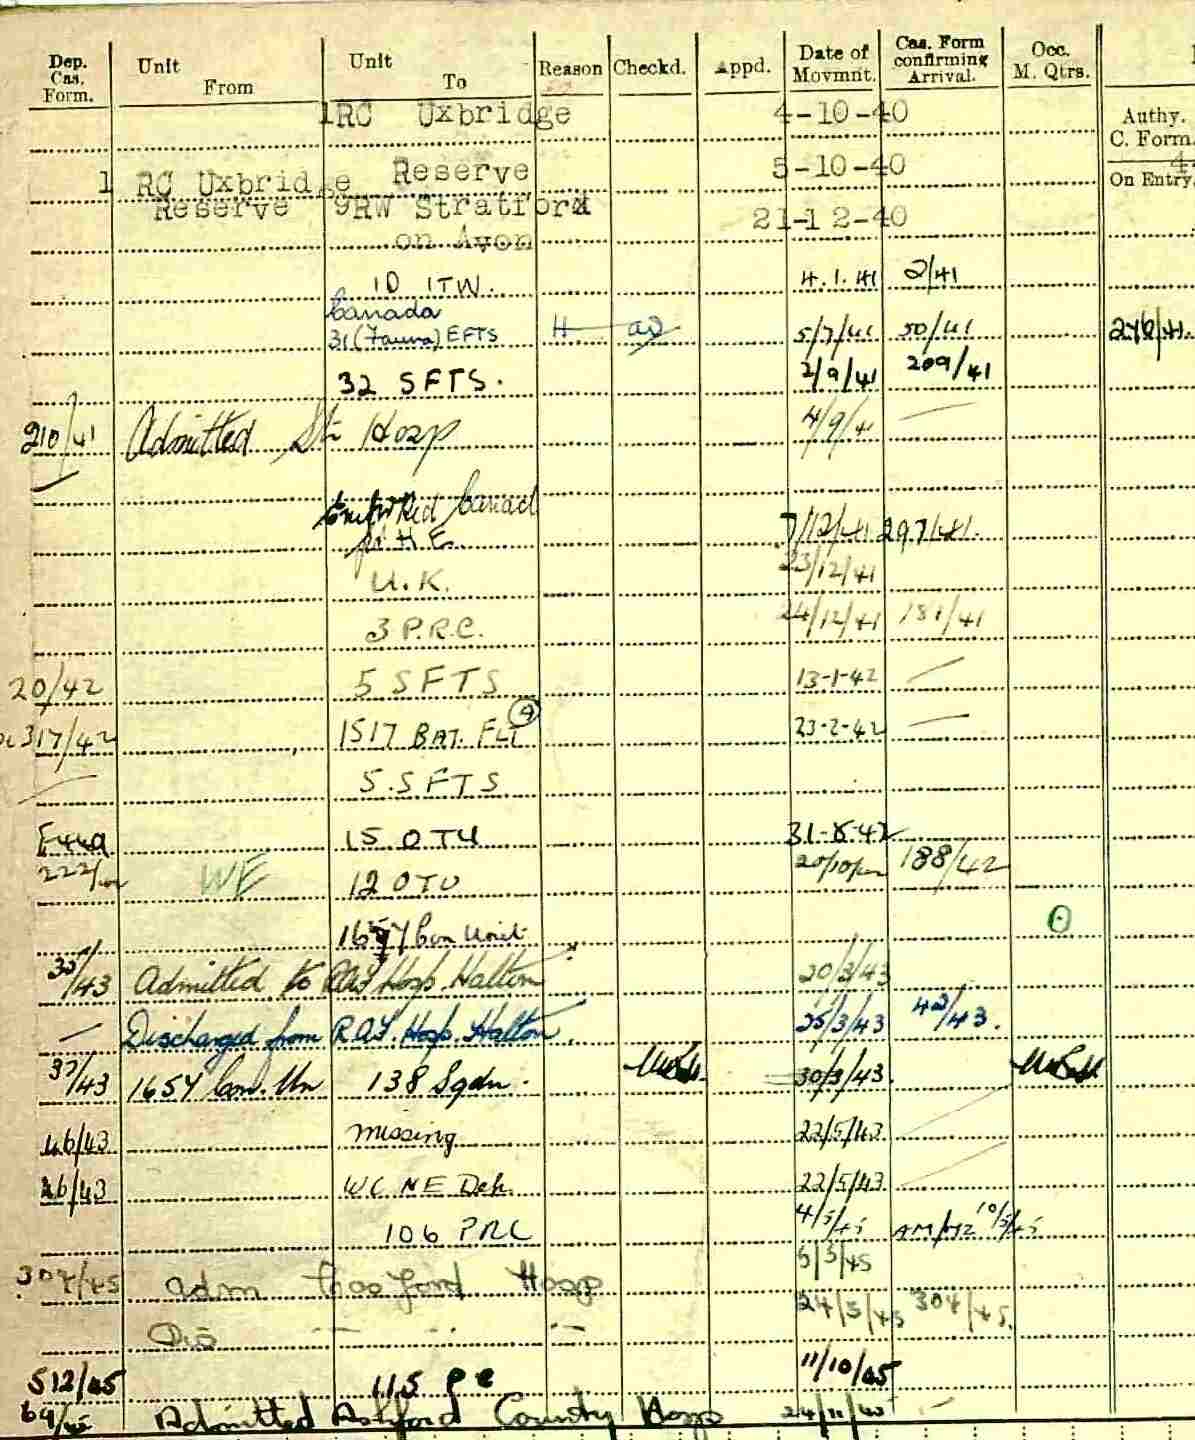 Dep. Cas. Form. Unit From Unit To Reason Checkd. Appd. Date of Movmnt. Cas. Form confirming Arrival. Occ. M. Qtrs.
Authy. C. Form.
On Entry
1RC Uxbridge 4-10-40
1 RC Uxbridge Reserve 5-10-40
Reserve 9RW Stratford on Avon 21-12-40
10 ITW. 4.1.41 2/41
Canada
31 EFTS H 5/7/41 50/41
32 SFTS. 2/9/41 209/41
210/41 Admitted Stn Hosp 4/9/41
Canad
for H.E. 7/12/41 297/41.
U.K. 23/12/41
3 P.R.C. 24/12/41 181/41
20/42 5 SFTS 13-1-42
317/42 1517 BAT. FLT 4 23-2-42
5.SFTS
15 OTU 31-8-42
WE 12 OTU 188/42
1657 Con Unit
Admitted to RAF Hosp. Halton 20/3/43
Discharged from R.A.F. Hosp. Halton. 25/3/43 42/43.
37/43 1657 Con. Un 138 Sqdn. 30/3/43.
46/43 missing 22/5/43
46/43 WC NE Deh. 22/5/43
106 PRC 4/5/45 10/5/45
304/45 adm Hosp 5/5/45
Dis 24/5/45 304/45.
512/45 115 PC 11/10/45
Admitted Ashford County Hosp